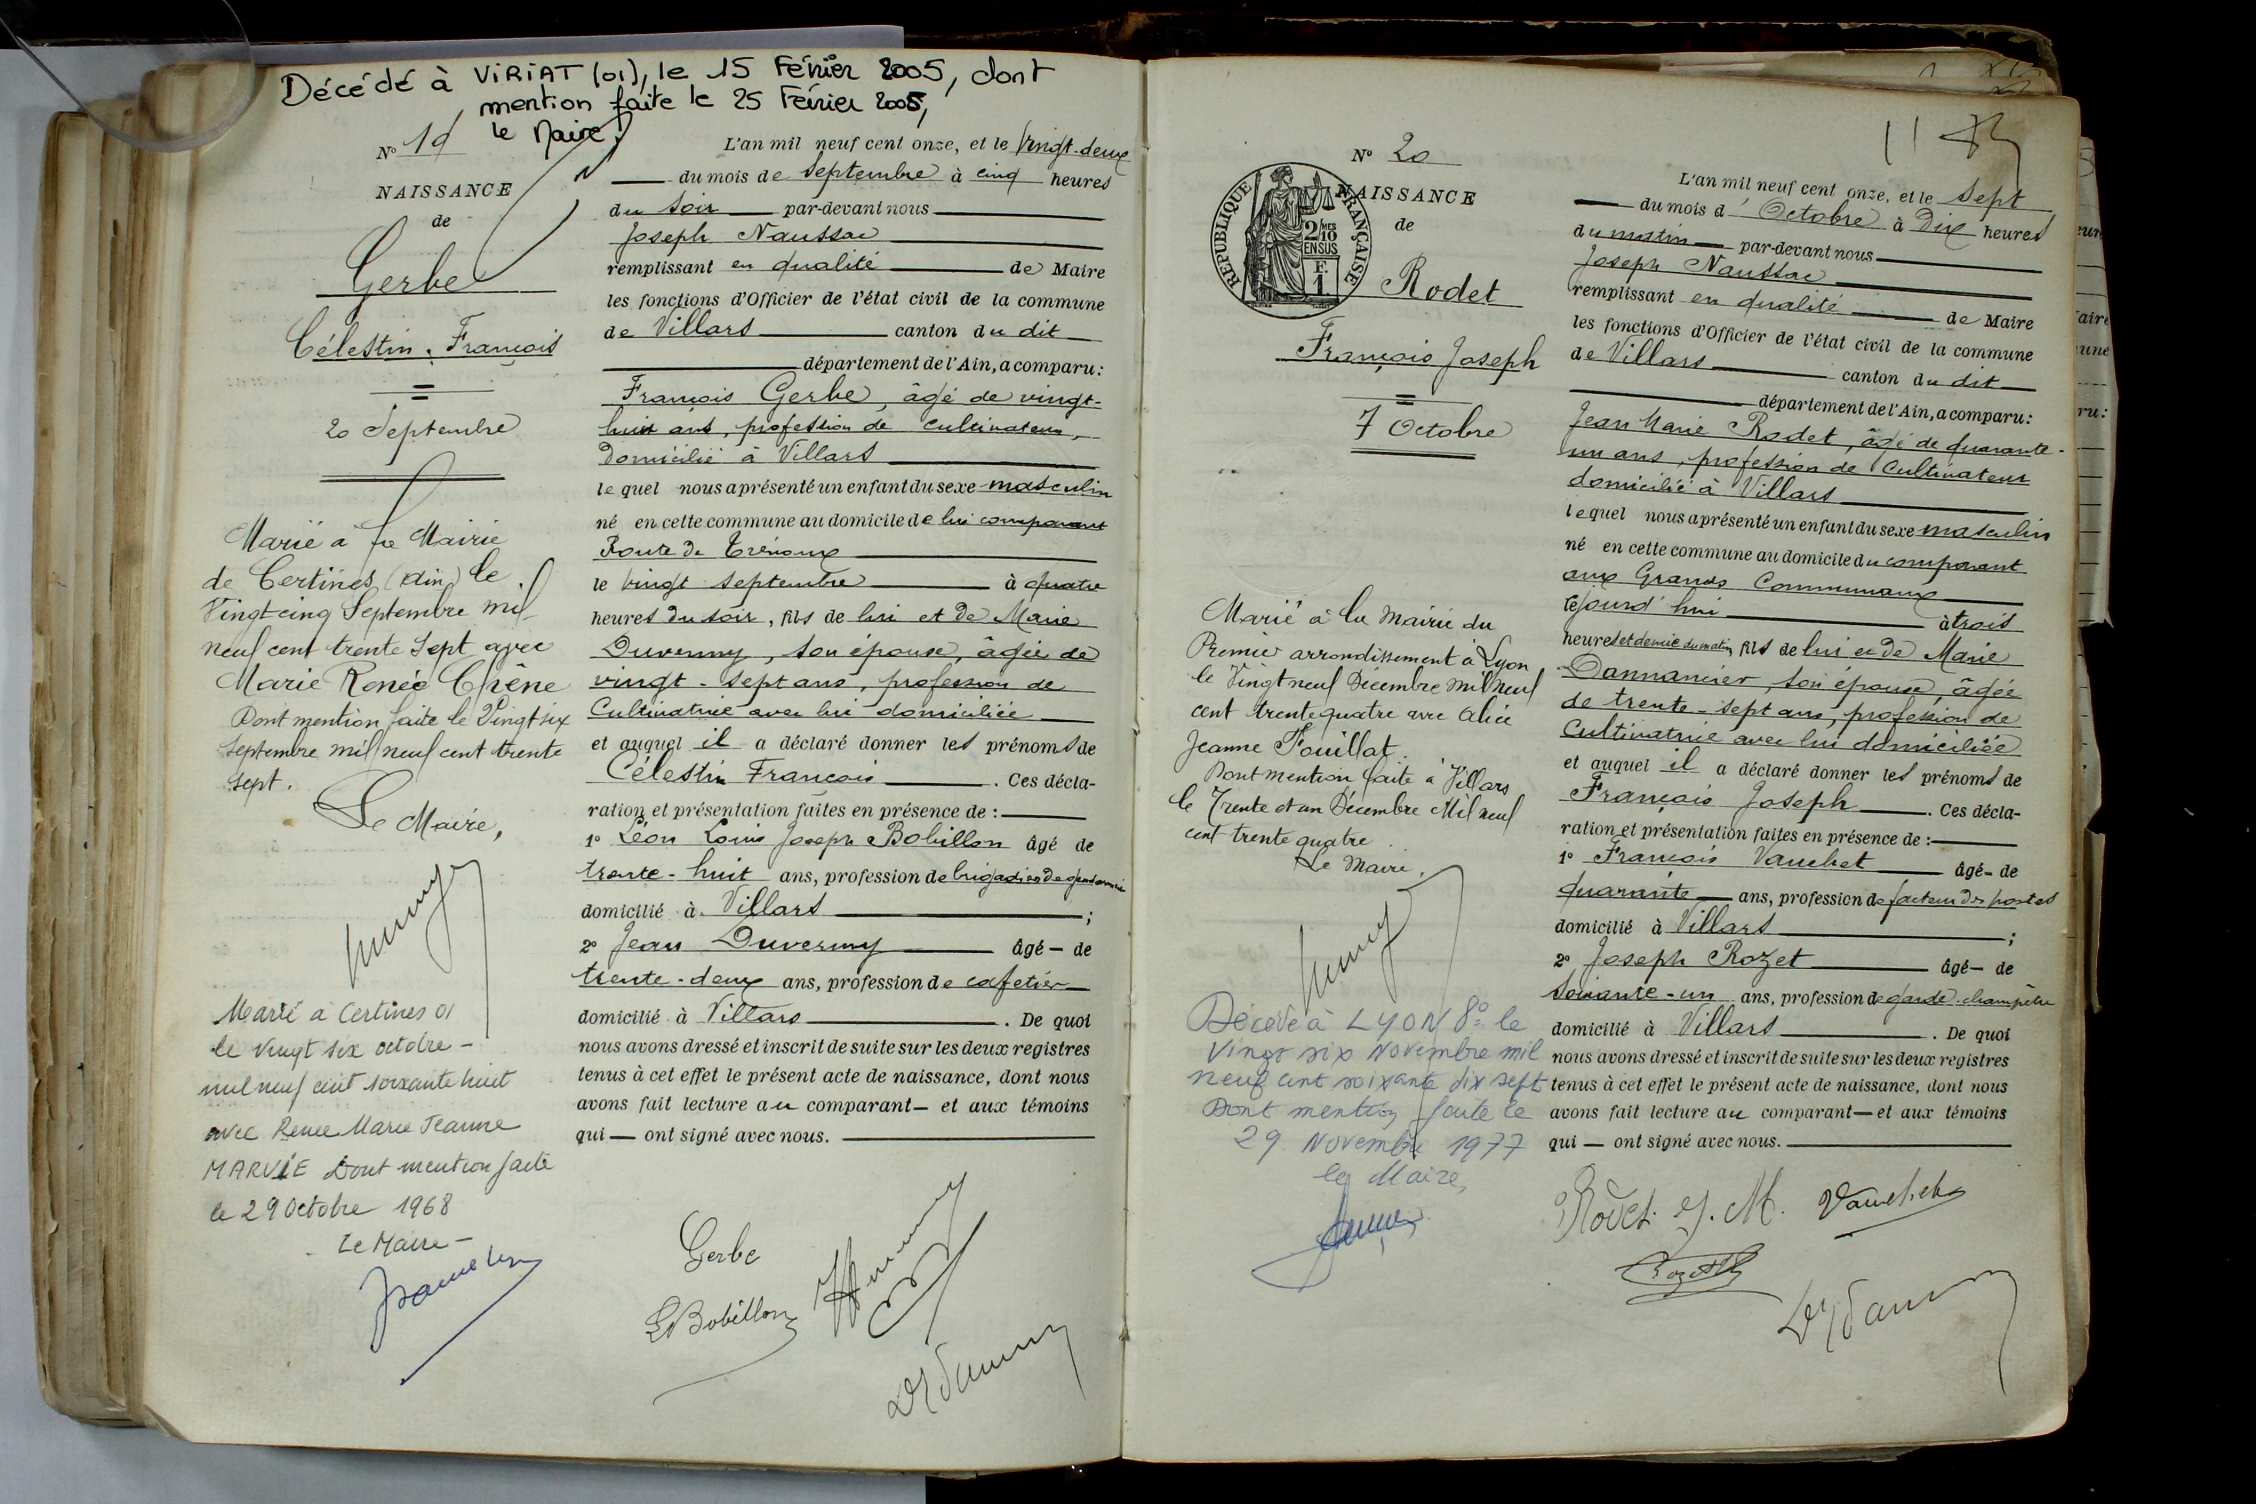 Décédé à VIRIAT (01), le 15 Février 2005, dont
mention faite le 25 Février 2005,
le Maire
N° 19
NAISSANCE
de
Gerbe
Célestin, François
20 Septembre
Marié à la Mairie
de Certines (Ain) le
Vingt cinq Septembre mil
neuf cent trente sept avec
Marie Renée Chêne
Dont mention faite le Vingt six
Septembre mil neuf cent trente
sept.
Le Maire,
Marié à Certines 01
le vingt six octobre
mil neuf cent soixante huit
avec Renée Marie Jeanne
MARVIE Dont mention faite
le 29 Octobre 1968
Le Maire
L'an mil neuf cent onze, et le vingt-deux
du mois de Septembre à cinq heures
du soir par-devant nous
Joseph Naussac
remplissant en qualité de Maire
les fonctions d'Officier de l'état civil de la commune
de Villars canton du dit
département de l'Ain, a comparu:
François Gerbe, âgé de vingt-
huit ans, profession de cultivateur,
domicilié à Villars
lequel nous a présenté un enfant du sexe masculin
né en cette commune au domicile de lui comparant
Route de
le vingt septembre à quatre
heures du soir, fils de lui et de Marie
Duvernay, son épouse, âgée de
vingt-sept ans, profession de
Cultivatrice avec lui domiciliée
et auquel il a déclaré donner les prénoms de
Célestin François. Ces décla-
ration et présentation faites en présence de:
1° Léon Louis Joseph Bobillon âgé de
trente-huit ans, profession de brigadier de gendarmerie
domicilié à Villars;
2° Jean Duvernay âgé de
trente-deux ans, profession de cafetier
domicilié à Villars. De quoi
nous avons dressé et inscrit de suite sur les deux registres
tenus à cet effet le présent acte de naissance, dont nous
avons fait lecture au comparant et aux témoins
qui ont signé avec nous.
Gerbe
L Bobillon
N° 20
RÉPUBLIQUE FRANÇAISE
2/10 MES
EN SUS
F.
1.
NAISSANCE
de
Rodet
François Joseph
7 Octobre
Marié à la Mairie du
Premier arrondissement à Lyon
le Vingt neuf Décembre mil neuf
cent trente quatre avec Alice
Jeanne Fouillat.
Dont mention faite à Villars
le Trente et un Décembre Mil neuf
cent trente quatre
Le Maire,
Décédé à LYON 8° le
vingt six Novembre mil
neuf cent soixante dix sept
Dont mention faite le
29 Novembre 1977
le Maire,
11
L'an mil neuf cent onze, et le sept
du mois d'Octobre à Dix heures
du matin par-devant nous
Joseph Naussac
remplissant en qualité de Maire
les fonctions d'Officier de l'état civil de la commune
de Villars canton du dit
département de l'Ain, a comparu:
Jean Marie Rodet, âgé de quarante-
un ans, profession de Cultivateur
domicilié à Villars
lequel nous a présenté un enfant du sexe masculin
né en cette commune au domicile du comparant
aux Grands Communaux
cejourd'hui à trois
heures et demie du matin, fils de lui et de Marie
Dannancier, son épouse, âgée
de trente-sept ans, profession de
Cultivatrice avec lui domiciliée
et auquel il a déclaré donner les prénoms de
François Joseph. Ces décla-
ration et présentation faites en présence de:
1° François Vauchet âgé de
quarante ans, profession de facteur des postes
domicilié à Villars;
2° Joseph Rozet âgé de
soixante-un ans, profession de garde-champêtre
domicilié à Villars. De quoi
nous avons dressé et inscrit de suite sur les deux registres
tenus à cet effet le présent acte de naissance, dont nous
avons fait lecture au comparant et aux témoins
qui ont signé avec nous.
Rodet J. M. Vauchet
Rozet